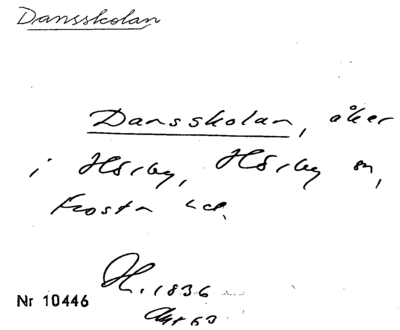 Dansskolan
Dansskolan, åker
i Hörby, Hörby sn,
Frosta hd.
H. 1836
Nr 10446
Akt 63